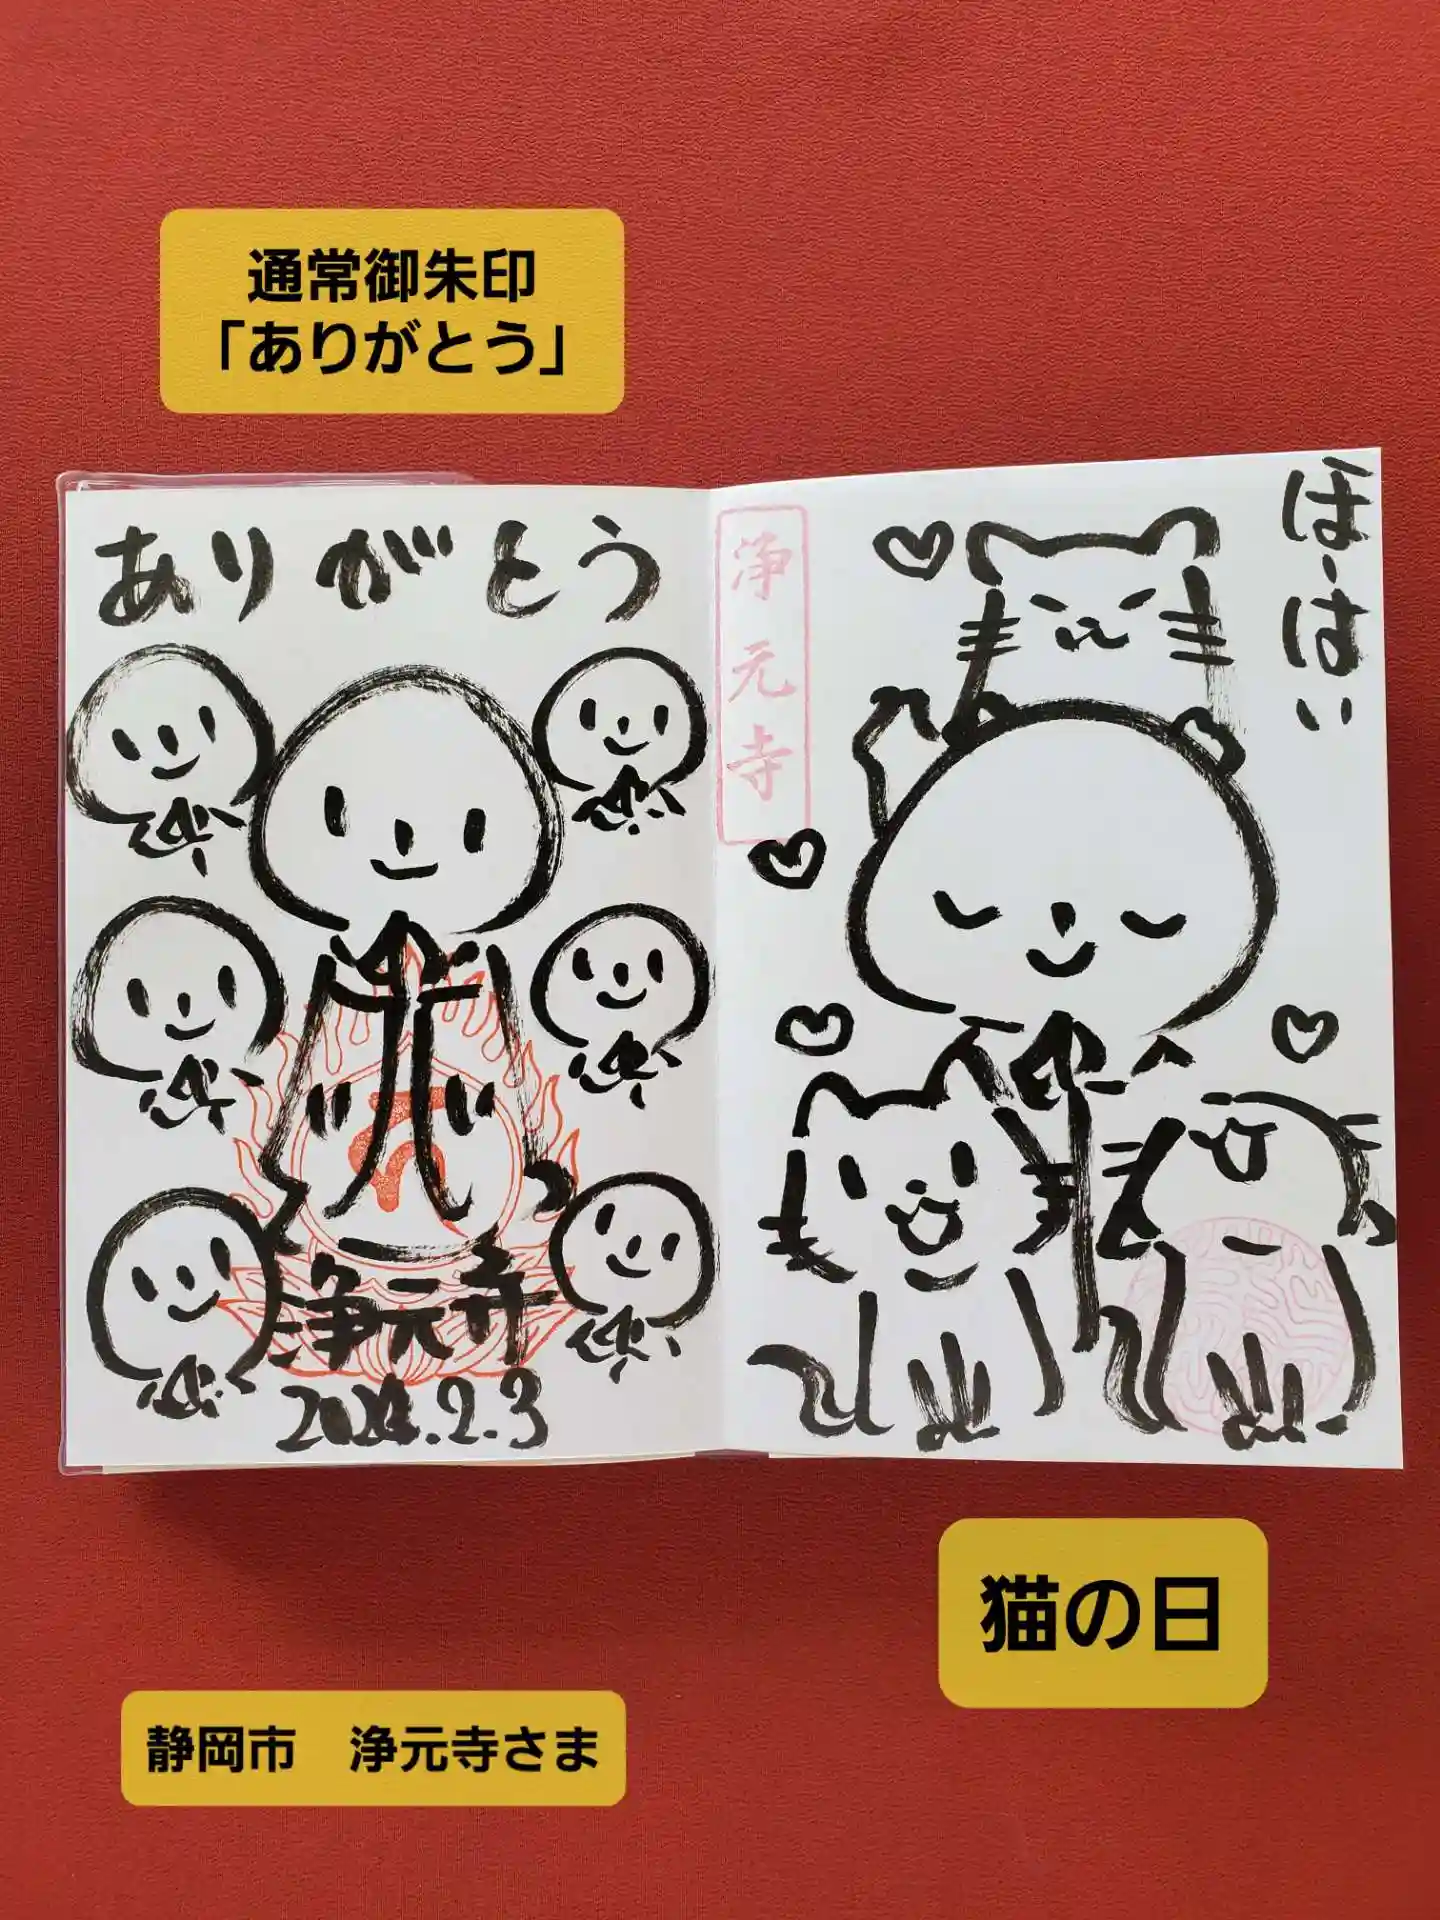 通常御朱印
「ありがとう」
ありがとう
浄元寺
2024.2.3
浄元寺
ほーほい
猫の日
静岡市　浄元寺さま